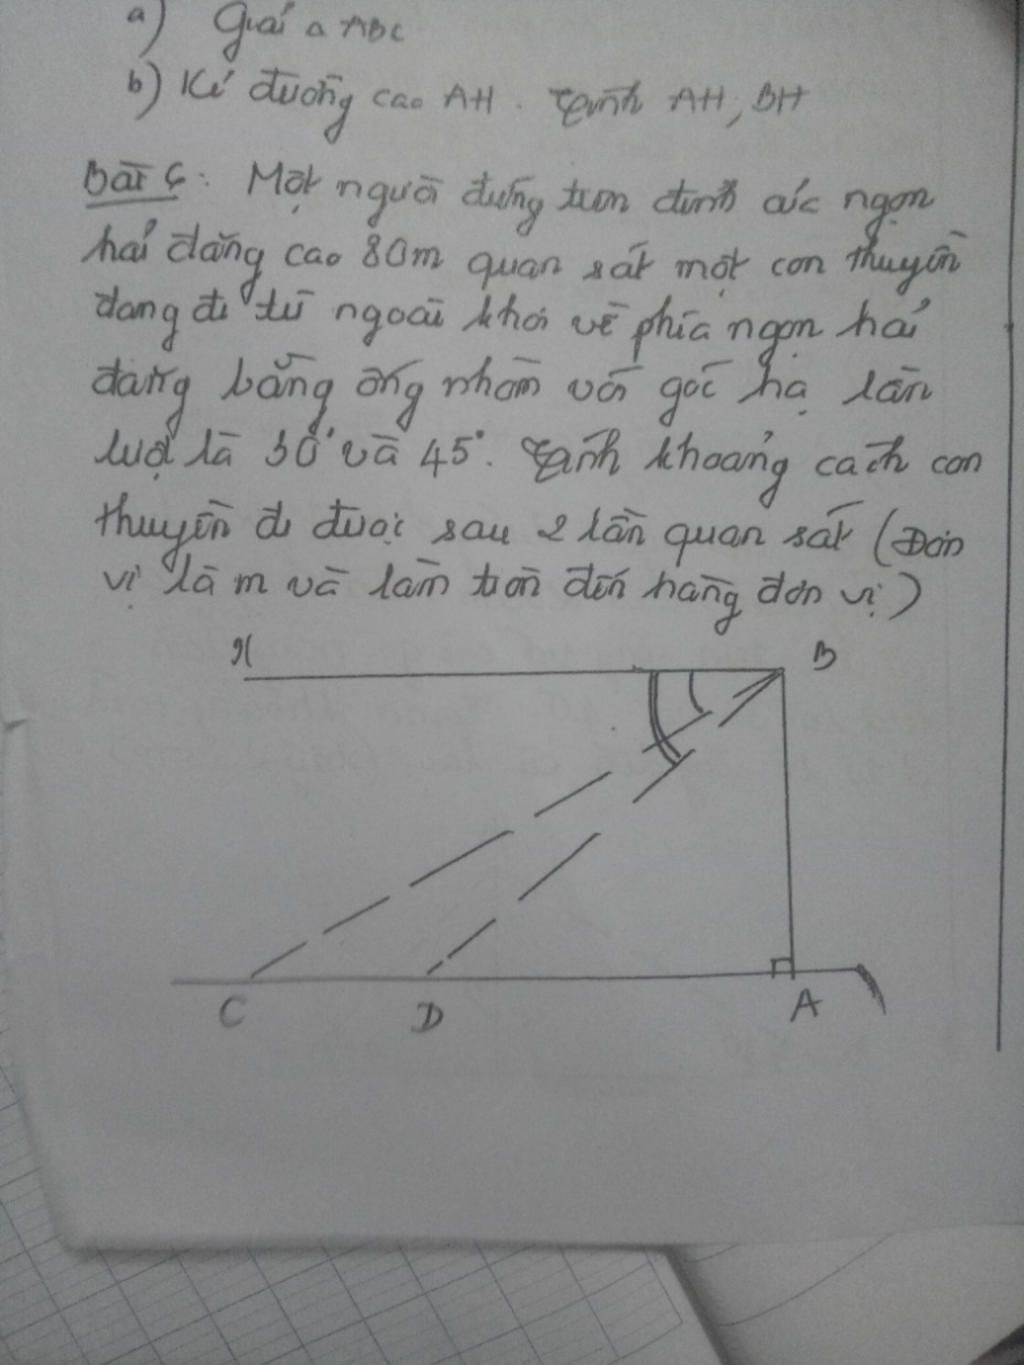 a) Giải △ ABC
b) Kẻ đường cao AH. Tính AH, BH
Bài 6: Một người đứng trên đỉnh các ngọn
hải đăng cao 80m quan sát một con thuyền
đang đi từ ngoài khơi về phía ngọn hải
đăng bằng ống nhòm với góc hạ lần
lượt là 30° và 45°. Tính khoảng cách con
thuyền đi được sau 2 lần quan sát (Đơn
vị là m và làm tròn đến hàng đơn vị)
x B
C D A